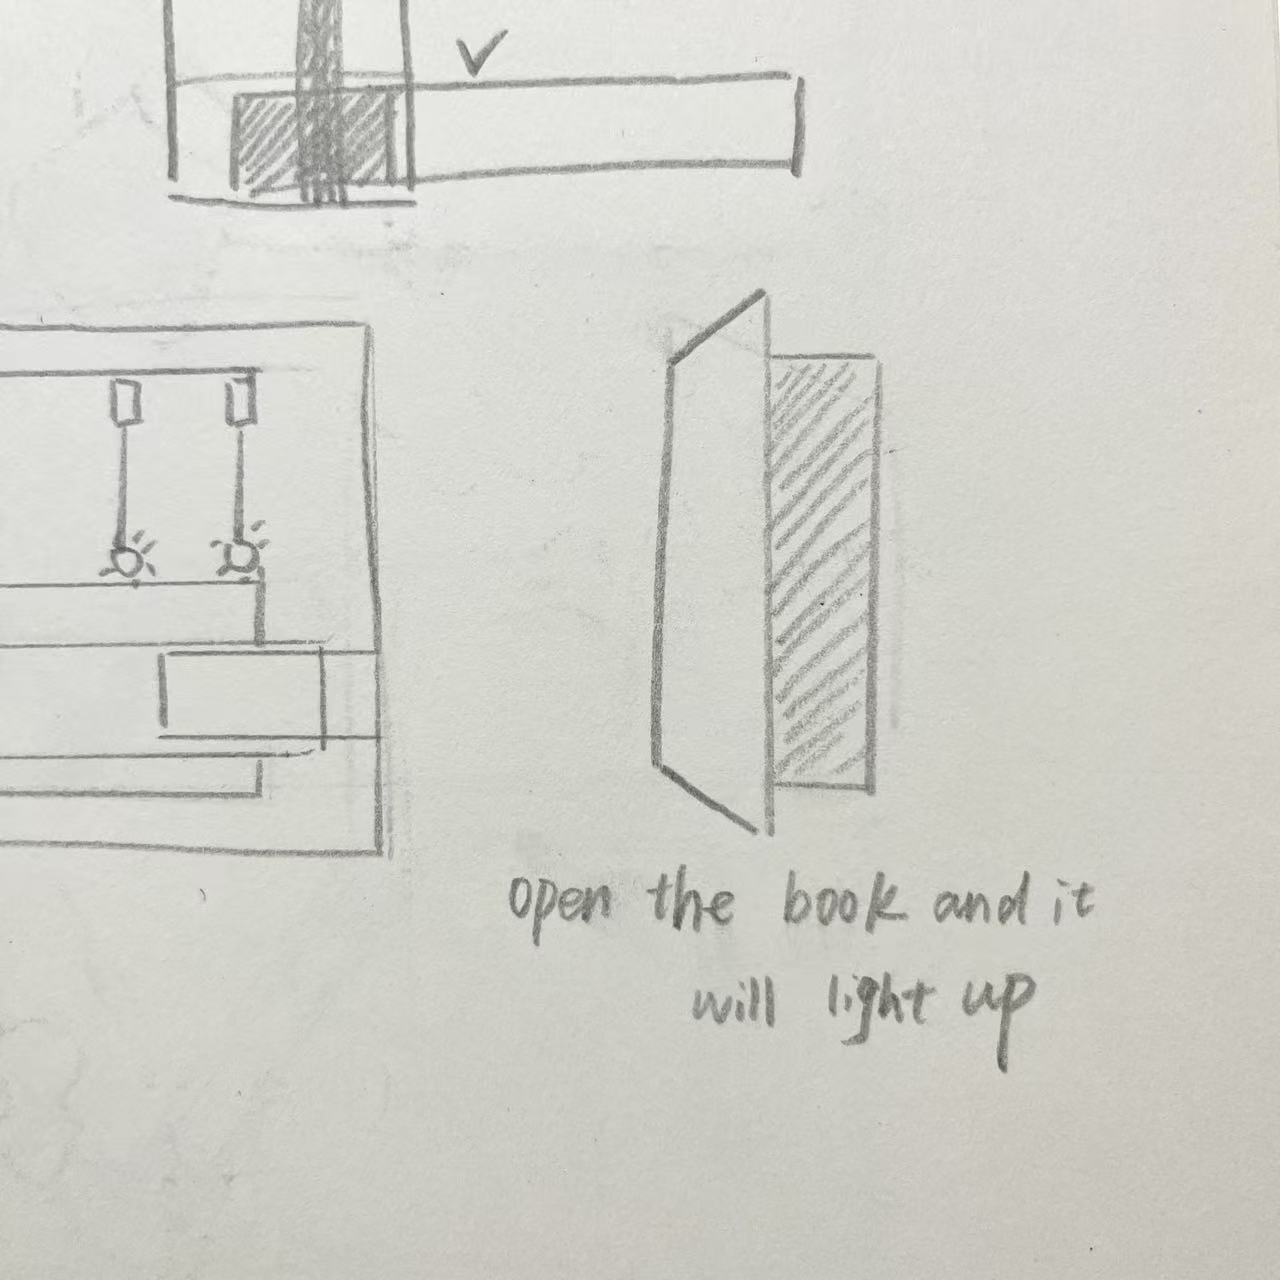 open the book and it
will light up